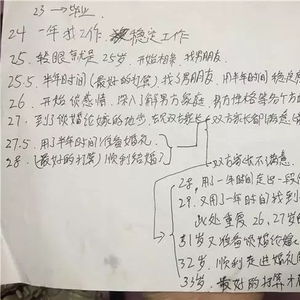 23 → 毕业.
24 一年找工作 稳定工作
25. 轻眼 就是25岁, 开始相亲, 找男朋友.
25.5. 半年时间(最好的打算)找了男朋友. 用半年时间稳定
26. 开始谈感情, 深入了解男方家庭, 男方性格等各个方
27. 到了谈婚论嫁的地步, 双方家长都满意
27.5. 用了半年时间准备婚礼.
28. (最好的打算) 顺利结婚?
双方家长不满意.
28, 用了一年时间走出一段
29. 又用了一年时间找到
此处重复26, 27岁
31岁又准备谈婚论嫁
32岁, 顺利走进婚礼
33岁, 最好的打算